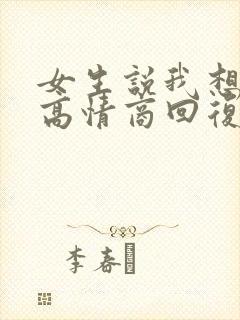 女生說我想
高情商回復
李春